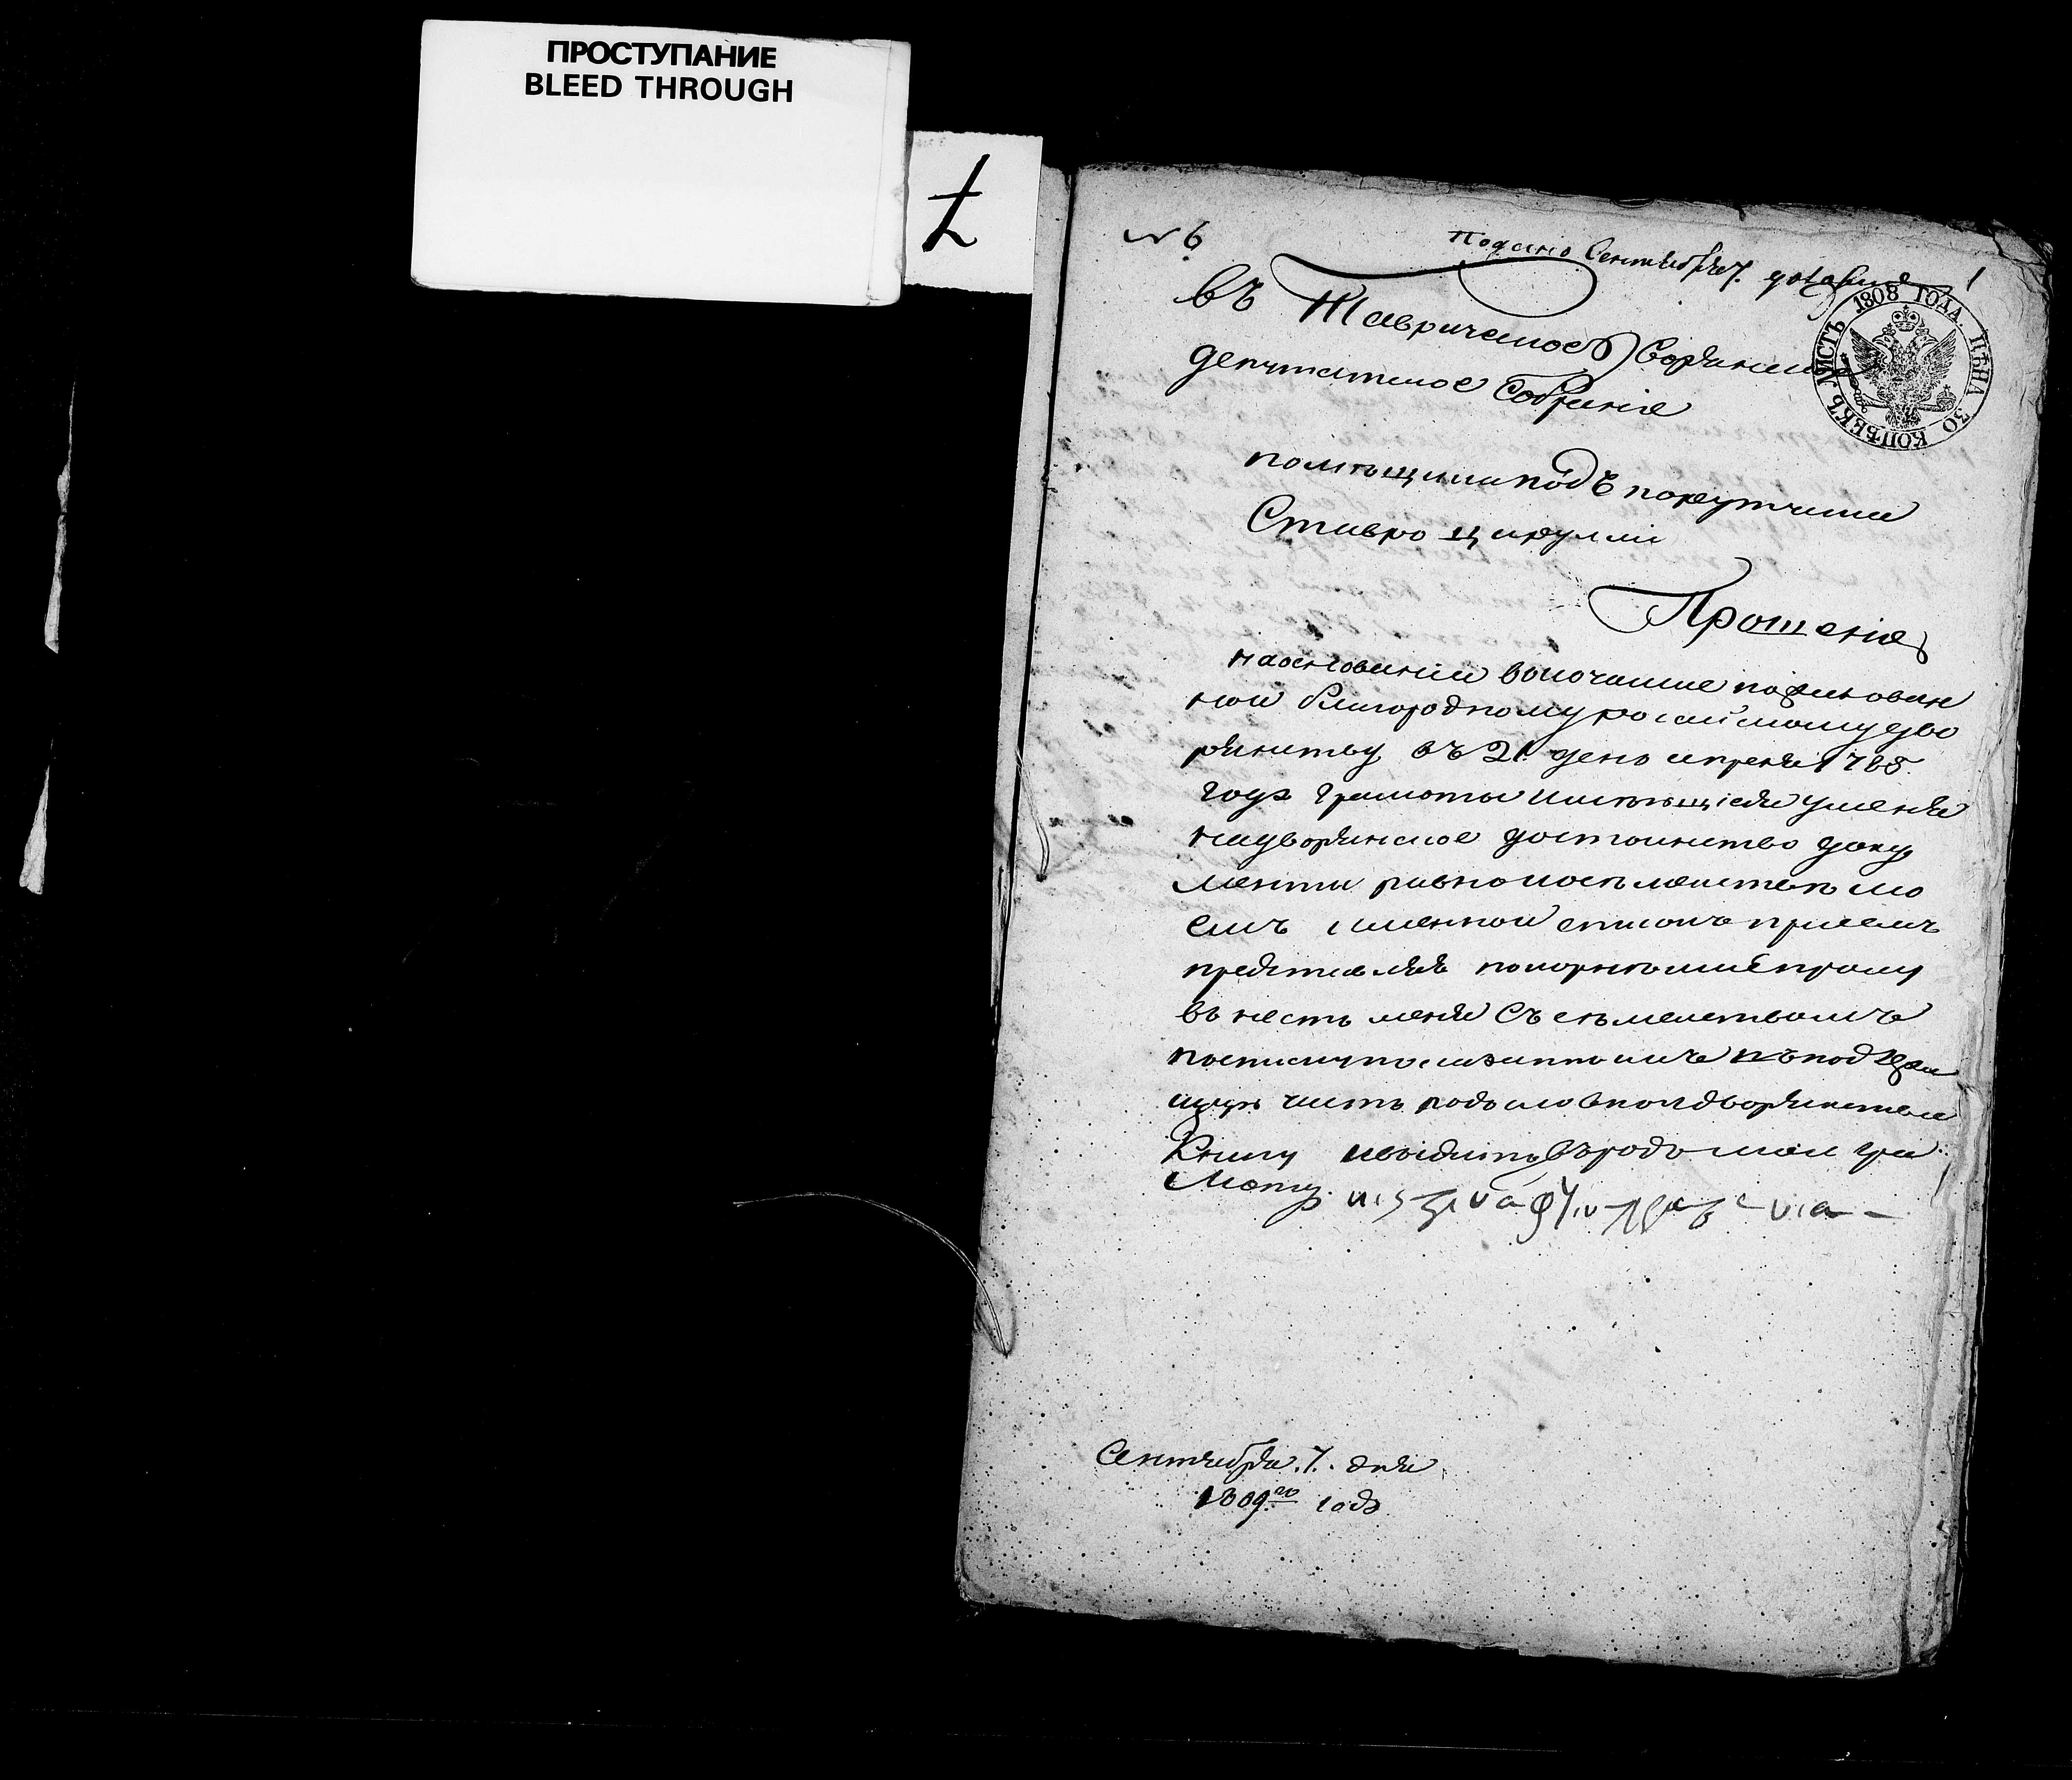 ПРОСТУПАНИЕ
BLEED THROUGH
№ 6
Подано Сентября 7. 1809 1
1808 ГОДА. ЦѢНА 30 КОПѢЕКЪ. ЛИСТЪ
въ Таврическое Дворянское
депутатское Собрание
помѣщика подъ порутчика
Ставро Цирулли
Прошение
на основании высочайше пожалован
ной благородному росийскому дво
рянству въ 21 день апреля 1785
года грамоты имѣющиеся у меня
на дворянское достоинство доку
менты равно и о семействѣ мо
емъ именной списокъ при семъ
представляя покорнѣйше прошу
внесть меня съ семействомъ
часть родословной дворянской
Книгу и выдать въ родъ мой гра
моту
Сентября .7. дня
1809го года